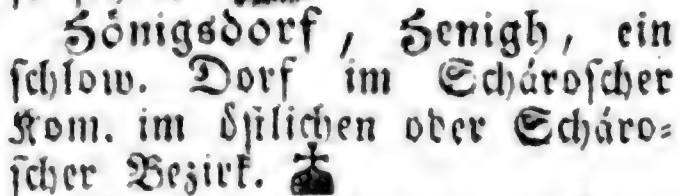 Hönigsdorf, Henigh, ein
schlow. Dorf im Schároscher
Kom. im östlichen oder Scháro=
scher Bezirk.